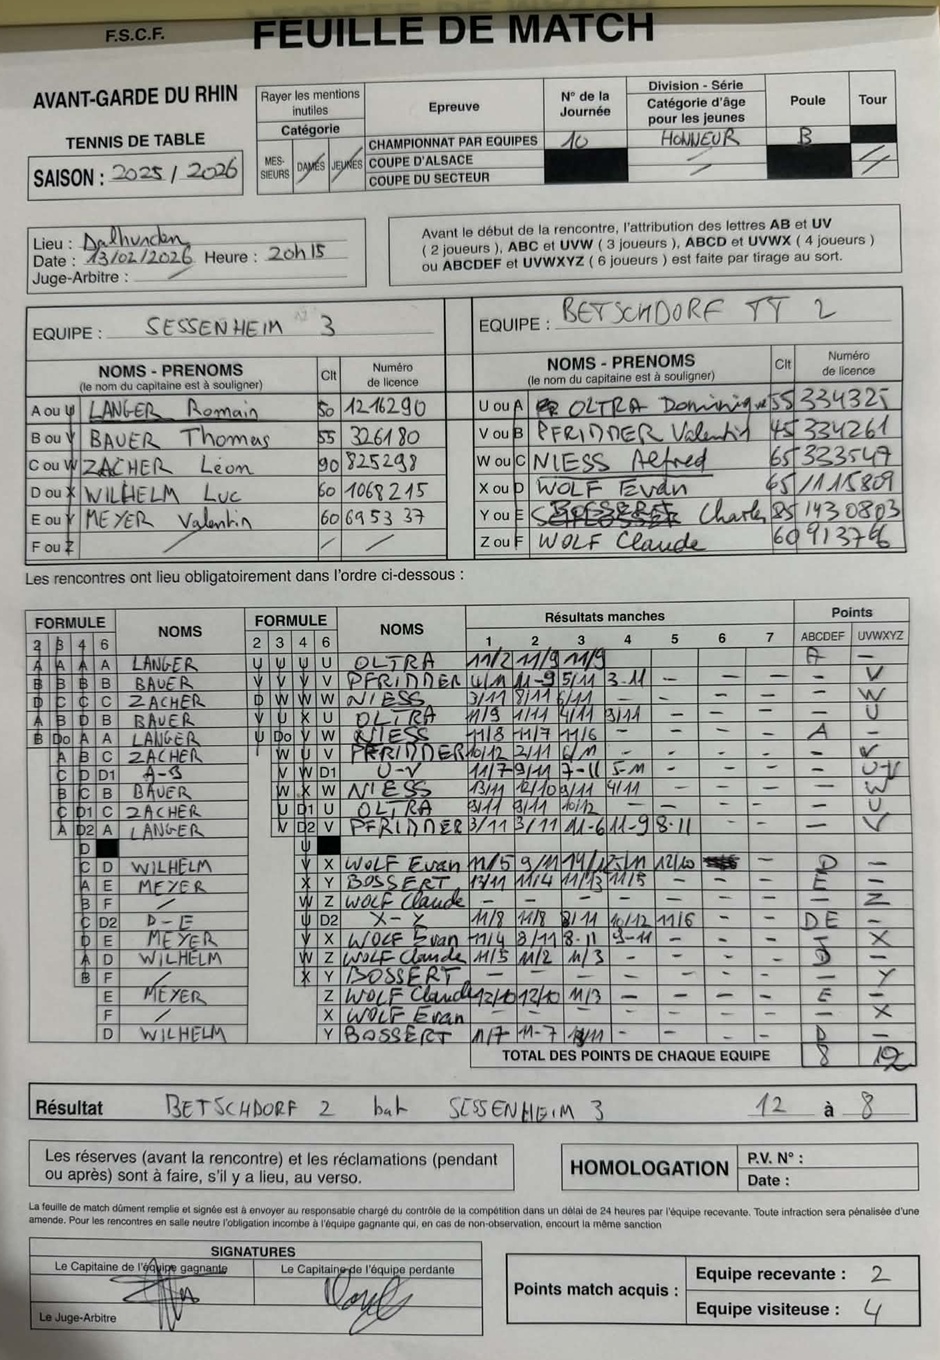 F.S.C.F. FEUILLE DE MATCH
AVANT-GARDE DU RHIN
TENNIS DE TABLE
SAISON : 2025 / 2026
Rayer les mentions inutiles
Catégorie
MES-SIEURS DAMES JEUNES
Epreuve
N° de la Journée
Division - Série
Catégorie d'âge pour les jeunes
Poule
Tour
CHAMPIONNAT PAR EQUIPES 10 HONNEUR B
COUPE D'ALSACE
COUPE DU SECTEUR
Lieu : Dalhunden
Date : 13/02/2026 Heure : 20h15
Juge-Arbitre :
Avant le début de la rencontre, l'attribution des lettres AB et UV
( 2 joueurs ), ABC et UVW ( 3 joueurs ), ABCD et UVWX ( 4 joueurs )
ou ABCDEF et UVWXYZ ( 6 joueurs ) est faite par tirage au sort.
EQUIPE : SESSENHEIM 3
EQUIPE : BETSCHDORF TT 2
NOMS - PRENOMS (le nom du capitaine est à souligner) Clt Numéro de licence
A ou U LANGER Romain 50 1216290
B ou V BAUER Thomas 55 326180
C ou W ZACHER Léon 90 825298
D ou X WILHELM Luc 60 1068215
E ou Y MEYER Valentin 60 695337
F ou Z / / /
NOMS - PRENOMS (le nom du capitaine est à souligner) Clt Numéro de licence
U ou A OLTRA Dominique 55 334325
V ou B PFRIDDER Valentin 45 334261
W ou C NIESS Alfred 65 333547
X ou D WOLF Evan 65 1115809
Y ou E Charles 85 1430803
Z ou F WOLF Claude 60
Les rencontres ont lieu obligatoirement dans l'ordre ci-dessous :
FORMULE NOMS FORMULE NOMS Résultats manches Points
2 3 4 6 2 3 4 6 1 2 3 4 5 6 7 ABCDEF UVWXYZ
A A A A LANGER U U U U OLTRA 11/2 11/9 11/9 A —
B B B B BAUER V V V V PFRIDDER 11-9 5/11 3-11 — — — — V
D C C C ZACHER D W W W NIESS 3/11 8/11 6/11 — — — — — W
A B D B BAUER V U X U OLTRA 11/9 1/11 4/11 3/11 — — — — U
B Do A A LANGER U Do V W NIESS 11/8 11/7 11/6 — — — — A —
A B C ZACHER W U V PFRIDDER 10/12 2/11 6/11 - - - - — V
C D D1 A-B V W D1 U-V 11/7 9/11 7-11 5-11 — — — — U-V
B C B BAUER W X W NIESS 13/11 12/10 3/11 4/11 — — — — W
C D1 C ZACHER U D1 U OLTRA 3/11 9/11 10/12 — — — — — U
A D2 A LANGER V D2 V PFRIDDER 3/11 3/11 11-6 11-9 8-11 — — — V
D U
C D WILHELM V X WOLF Evan 11/5 9/11 12/10 - D —
A E MEYER X Y BOSSERT 13/11 11/4 11/13 11/5 - - - E —
B F / W Z WOLF Claude — — — — — — — — Z
C D2 D-E U D2 X-Y 11/8 11/8 8/11 10/12 11/6 - - DE —
D E MEYER V X WOLF Evan 11/4 8/11 8-11 9-11 - - - X
A D WILHELM W Z WOLF Claude 11/5 11/2 11/3 — — — — D —
B F / X Y BOSSERT — — — — — — — — Y
E MEYER Z WOLF Claude 12/10 12/10 11/3 — — — — E —
F / X WOLF Evan — — — — — — — — X
D WILHELM Y BOSSERT 11/7 11-7 - - - - D —
TOTAL DES POINTS DE CHAQUE EQUIPE 8 12
Résultat BETSCHDORF 2 bat SESSENHEIM 3 12 à 8
Les réserves (avant la rencontre) et les réclamations (pendant
ou après) sont à faire, s'il y a lieu, au verso.
HOMOLOGATION
P.V. N° :
Date :
La feuille de match dûment remplie et signée est à envoyer au responsable chargé du contrôle de la compétition dans un délai de 24 heures par l'équipe recevante. Toute infraction sera pénalisée d'une
amende. Pour les rencontres en salle neutre l'obligation incombe à l'équipe gagnante qui, en cas de non-observation, encourt la même sanction
SIGNATURES
Le Capitaine de l'équipe gagnante Le Capitaine de l'équipe perdante
Le Juge-Arbitre
Points match acquis :
Equipe recevante : 2
Equipe visiteuse : 4